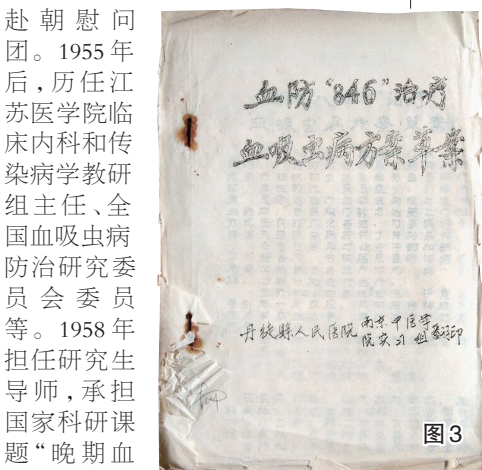 赴朝慰问
团。1955年
后，历任江
苏医学院临
床内科和传
染病学教研
组主任、全
国血吸虫病
防治研究委
员会委员
等。1958年
担任研究生
导师，承担
国家科研课
题“晚期血
血防“846”治疗
血吸虫病方案草案
丹徒县人民医院
南京中医学
院实习组
翻印
图3